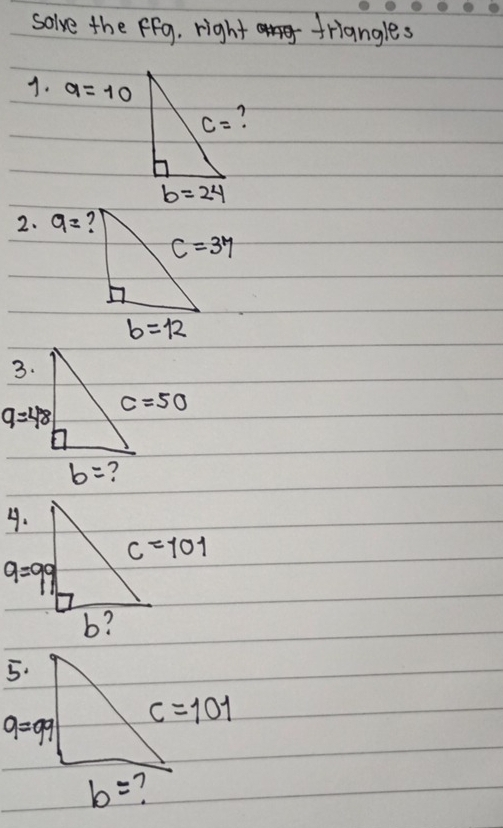 Solve the ffg. right triangles
1. a=10
c=?
b=24
2. a=?
c=37
b=12
3.
a=48
c=50
b=?
4.
a=99
c=101
b?
5.
a=99
c=101
b=?